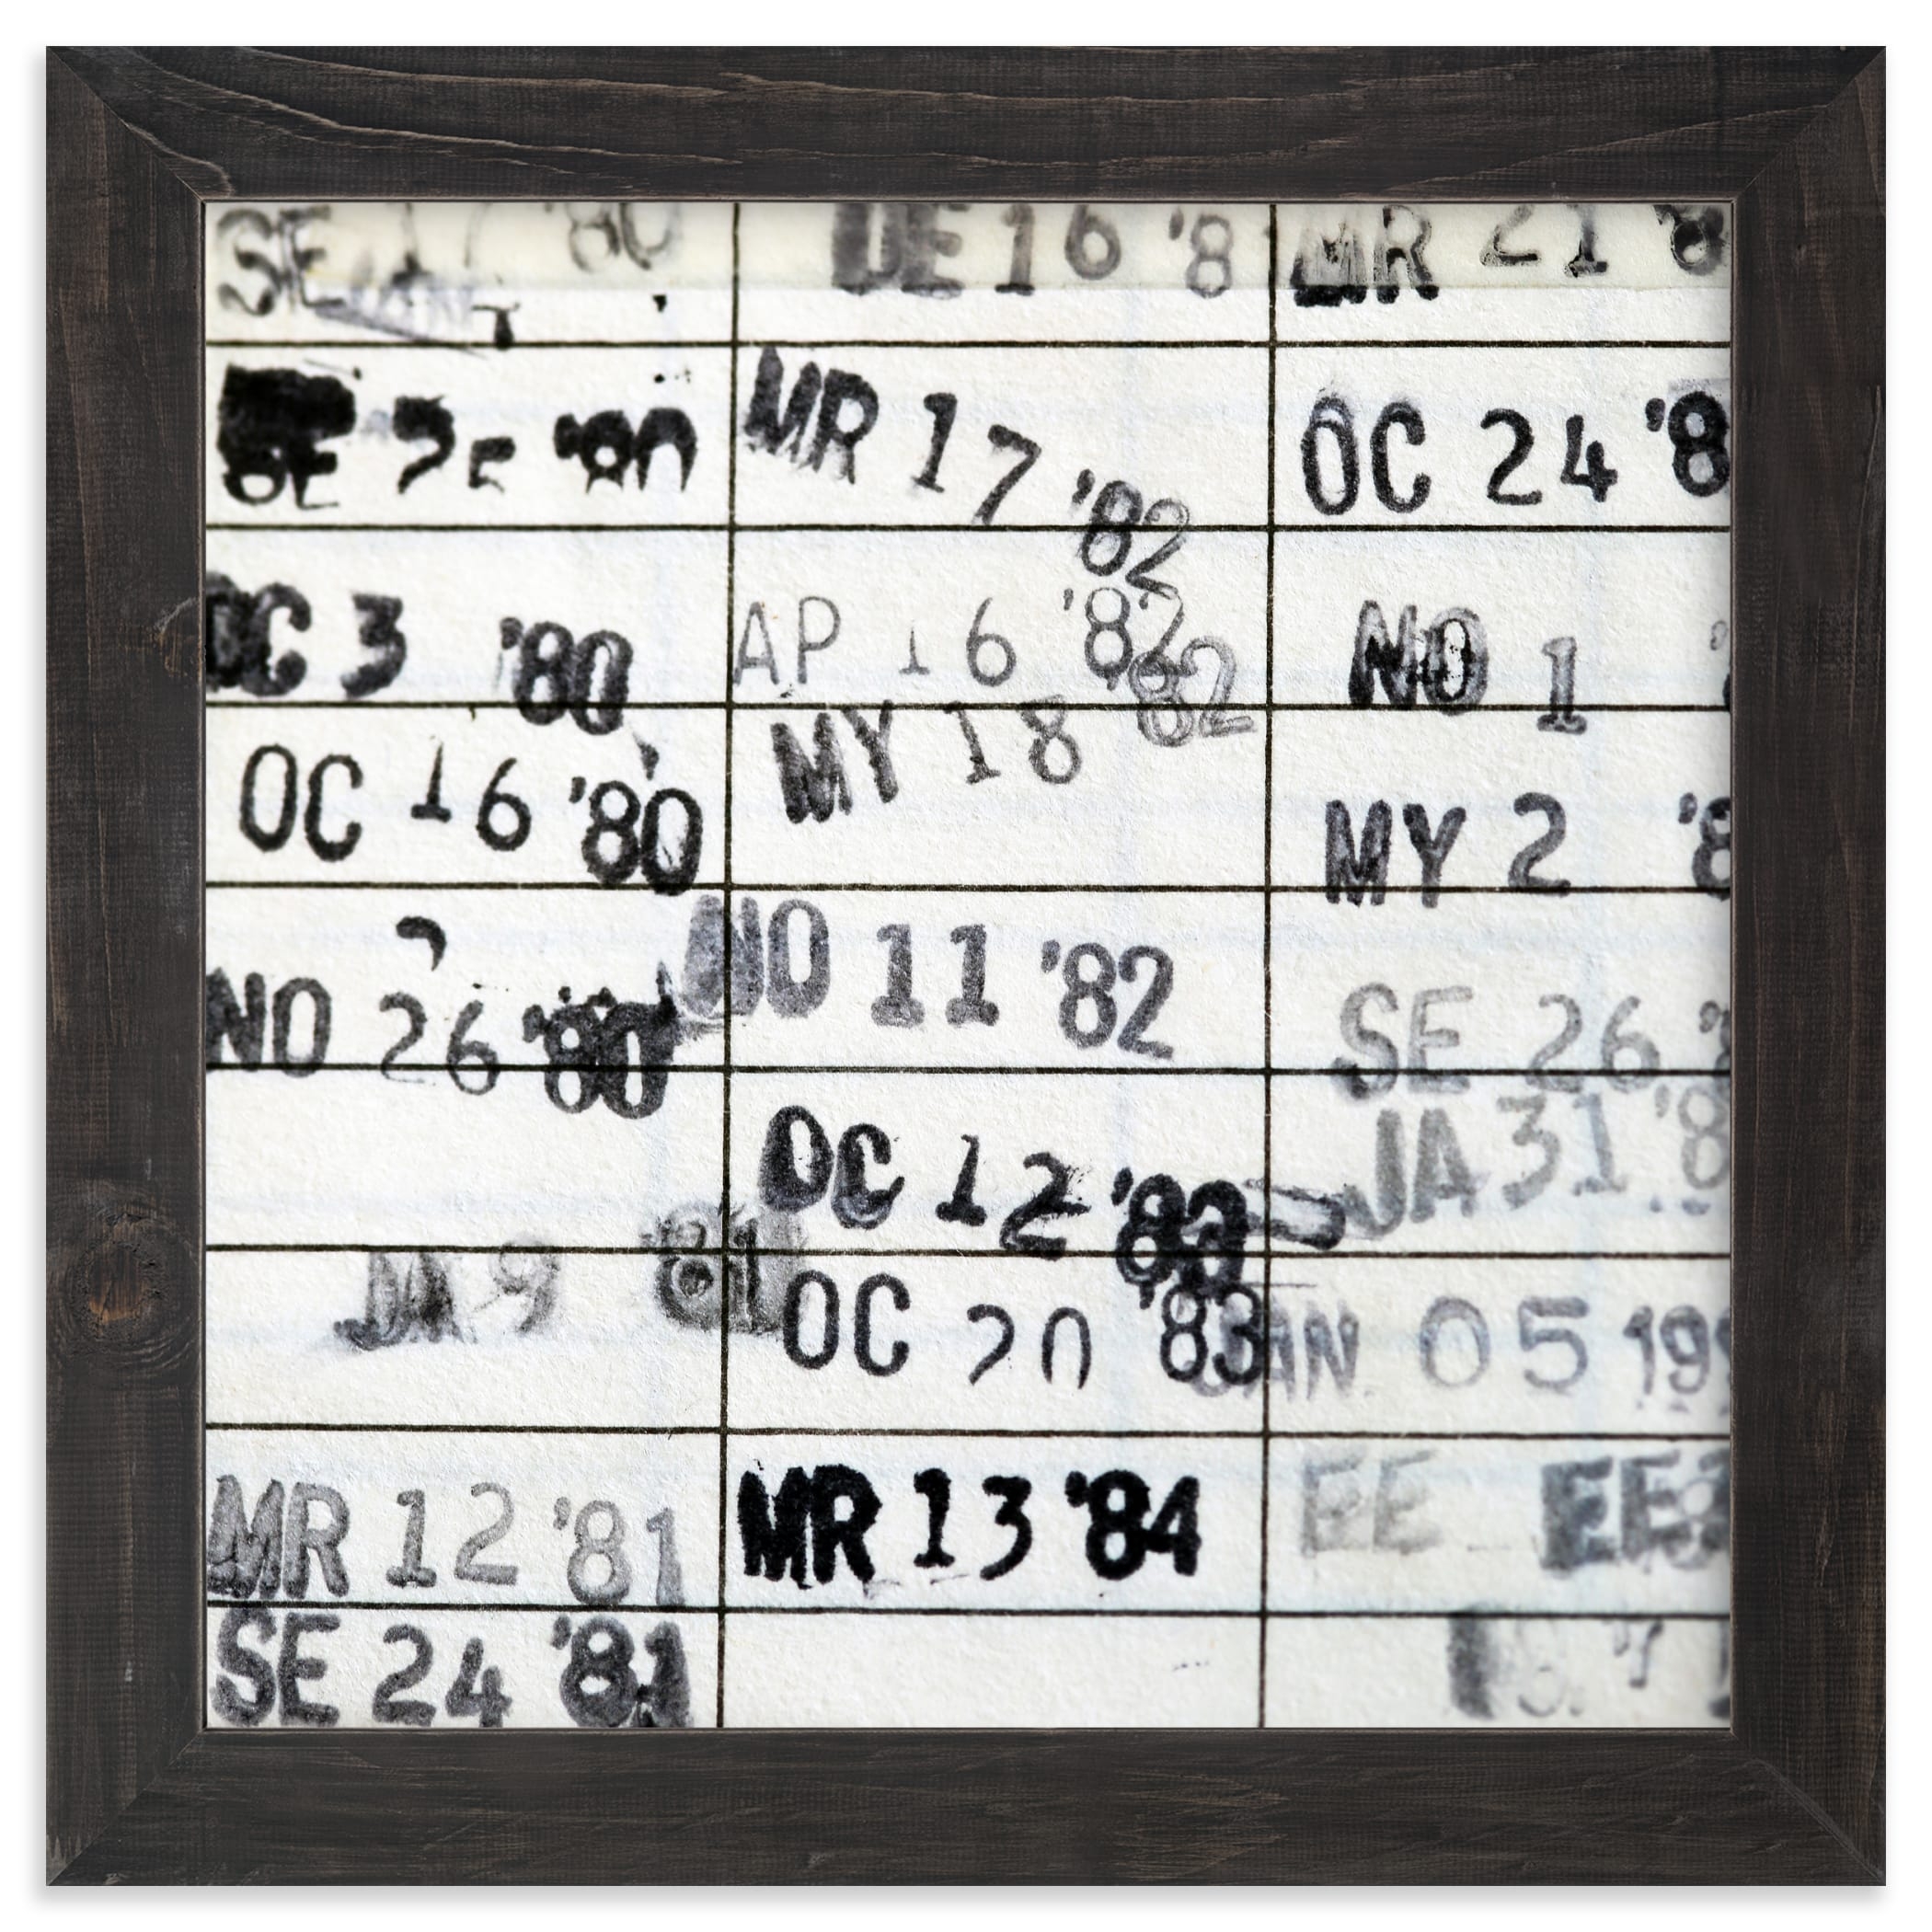 SE 17 '80
'80
OC 3 '80
OC 16 '80
NO 26 '80
JA 9 '81
MR 12 '81
SE 24 '81
DE 16 '8
MR 17 '82
AP 16 '82
MY 18 82
NO 11 '82
OC 12 '83
OC 20 '83
MR 13 '84
MR 21 '8
OC 24 '8
NO 1
MY 2 '8
SE 26
JA 31 '8
AN 05 199
EE EE